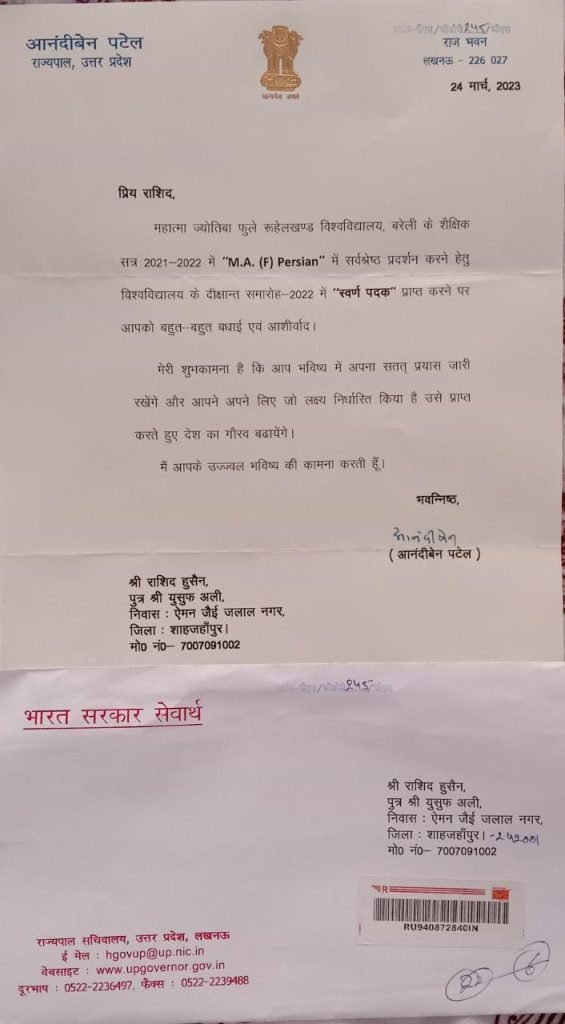 आनंदीबेन पटेल
राज्यपाल, उत्तर प्रदेश
सत्यमेव जयते
245
राज भवन
लखनऊ - 226 027
24 मार्च, 2023
प्रिय राशिद,
महात्मा ज्योतिबा फुले रूहेलखण्ड विश्वविद्यालय, बरेली के शैक्षिक
सत्र 2021-2022 में "M.A. (F) Persian" में सर्वश्रेष्ठ प्रदर्शन करने हेतु
विश्वविद्यालय के दीक्षान्त समारोह-2022 में "स्वर्ण पदक" प्राप्त करने पर
आपको बहुत-बहुत बधाई एवं आशीर्वाद।
मेरी शुभकामना है कि आप भविष्य में अपना सतत् प्रयास जारी
रखेंगे और आपने अपने लिए जो लक्ष्य निर्धारित किया है उसे प्राप्त
करते हुए देश का गौरव बढायेंगे।
मैं आपके उज्ज्वल भविष्य की कामना करती हूँ।
भवन्निष्ठ,
आनंदीबेन
( आनंदीबेन पटेल )
श्री राशिद हुसैन,
पुत्र श्री युसुफ अली,
निवास : ऐमन जैई जलाल नगर,
जिला : शाहजहाँपुर।
मो0 नं0- 7007091002
245
भारत सरकार सेवार्थ
श्री राशिद हुसैन,
पुत्र श्री युसुफ अली,
निवास : ऐमन जैई जलाल नगर,
जिला : शाहजहाँपुर। -242001
मो0 नं0- 7007091002
R
RU940872840IN
राज्यपाल सचिवालय, उत्तर प्रदेश, लखनऊ
ई मेल : hgovup@up.nic.in
वेबसाइट : www.upgovernor.gov.in
दूरभाष : 0522-2236497, फैक्स : 0522-2239488